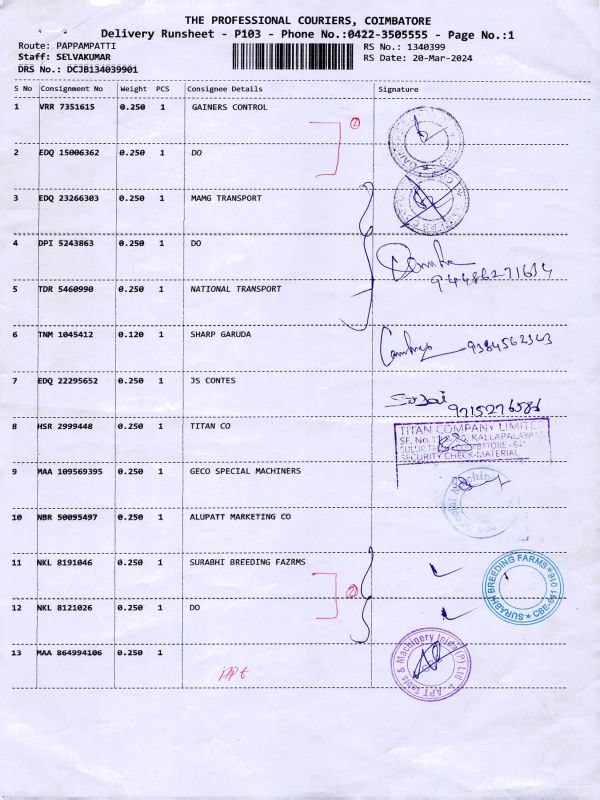 THE PROFESSIONAL COURIERS, COIMBATORE
Delivery Runsheet - P103 - Phone No.:0422-3505555 - Page No.:1
Route: PAPPAMPATTI RS No.: 1340399
Staff: SELVAKUMAR RS Date: 20-Mar-2024
DRS No.: DCJB134039901
S No Consignment No Weight PCS Consignee Details Signature
1 VRR 7351615 0.250 1 GAINERS CONTROL
2
2 EDQ 15006362 0.250 1 DO
3 EDQ 23266303 0.250 1 MAMG TRANSPORT
4 DPI 5243863 0.250 1 DO
94486271634
5 TDR 5460990 0.250 1 NATIONAL TRANSPORT
6 TNM 1045412 0.120 1 SHARP GARUDA
9384562343
7 EDQ 22295652 0.250 1 JS CONTES
9715276586
8 HSR 2999448 0.250 1 TITAN CO
TITAN COMPANY LIMITED
KALLAPALAYAM
SECURITY CHECK-MATERIAL
9 MAA 109569395 0.250 1 GECO SPECIAL MACHINERS
10 NBR 50095497 0.250 1 ALUPATT MARKETING CO
11 NKL 8191046 0.250 1 SURABHI BREEDING FAZRMS
SURABHI BREEDING FARMS
2
12 NKL 8121026 0.250 1 DO
13 MAA 864994106 0.250 1
APT Tools & Machinery India (P) Ltd